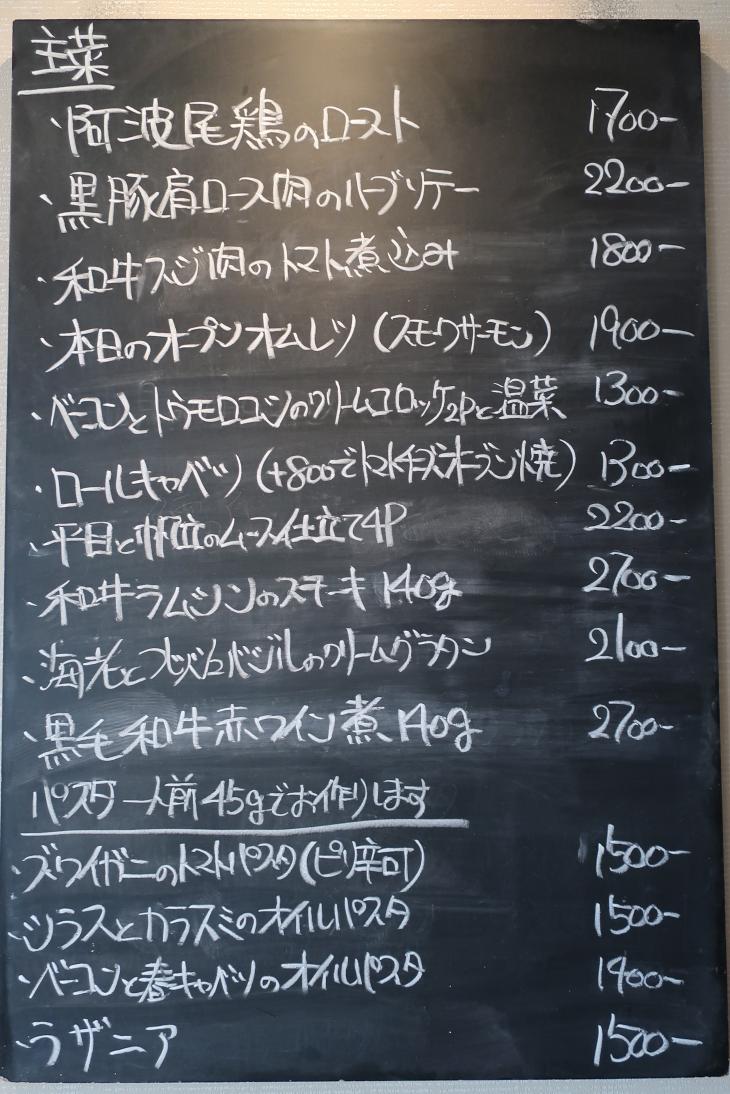 主菜
・阿波尾鶏のロースト 1700-
・黒豚肩ロース肉のハーブソテー 2200-
・和牛スジ肉のトマト煮込み 1800-
・本日のオープンオムレツ(スモークサーモン) 1900-
・ベーコンとトウモロコシのクリームコロッケ2Pと温菜 1300-
・ロールキャベツ(+800でトマトチーズオーブン焼) 1300-
・平目と帆立のムース仕立て4P 2200-
・和牛ラムシンのステーキ 140g 2700-
・海老とバジルのクリームグラタン 2100-
・黒毛和牛赤ワイン煮 140g 2700-
パスタ一人前45gでお作りします
・ズワイガニのトマトパスタ(ピリ辛可) 1500-
・シラスとカラスミのオイルパスタ 1500-
・ベーコンと春キャベツのオイルパスタ 1400-
・ラザニア 1500-